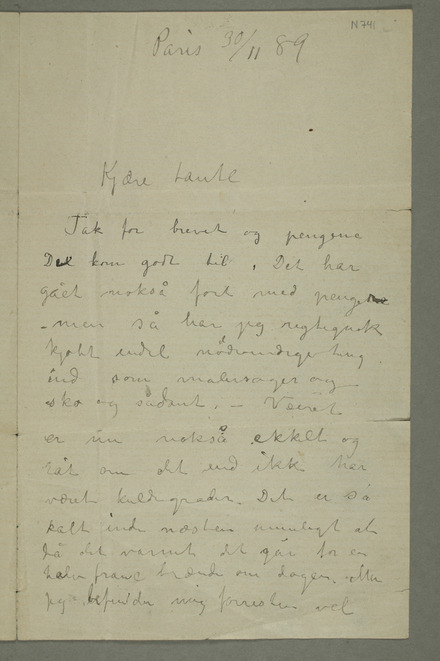 N 741
Paris 30/11 89
Kjære tante
Tak for brevet og pengene
Det kom godt til. Det har
gået nokså fort med pengene
– men så har jeg rigtignok
kjøbt endel nødvendige ting
ind som malersager og
sko og sådant. – Veeret
er nu nokså ekkelt og
råt om det end ikke har
været kuldegrader. Det er så
kalt inde næsten umuligt at
få det varmt det går for en
halv franc brænde om dagen.
jeg befinder mig forresten vel